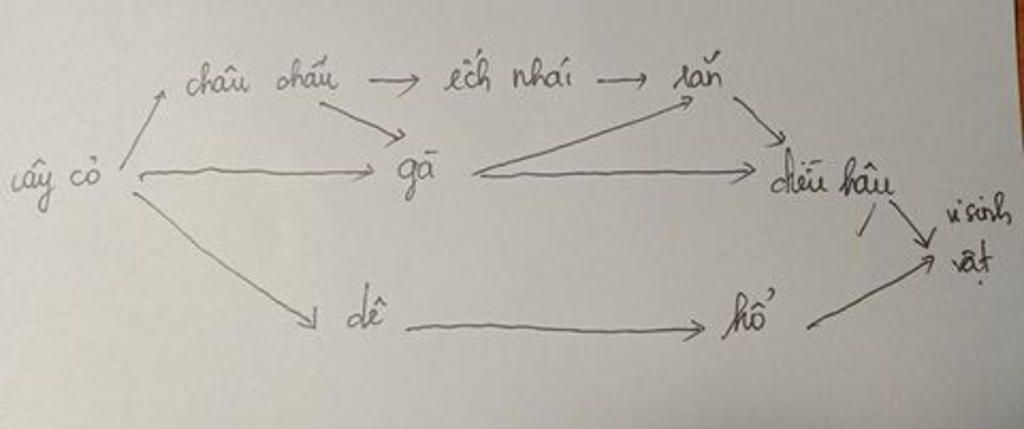 châu chấu → ếch nhái → rắn
cây cỏ → gà → diều hâu
vi sinh
vật
dê → hổ